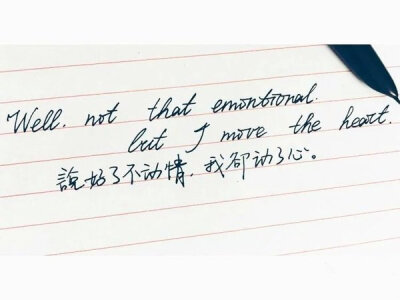 Well. not that emontional.
but I move the heart.
說好了不动情，我却动了心。